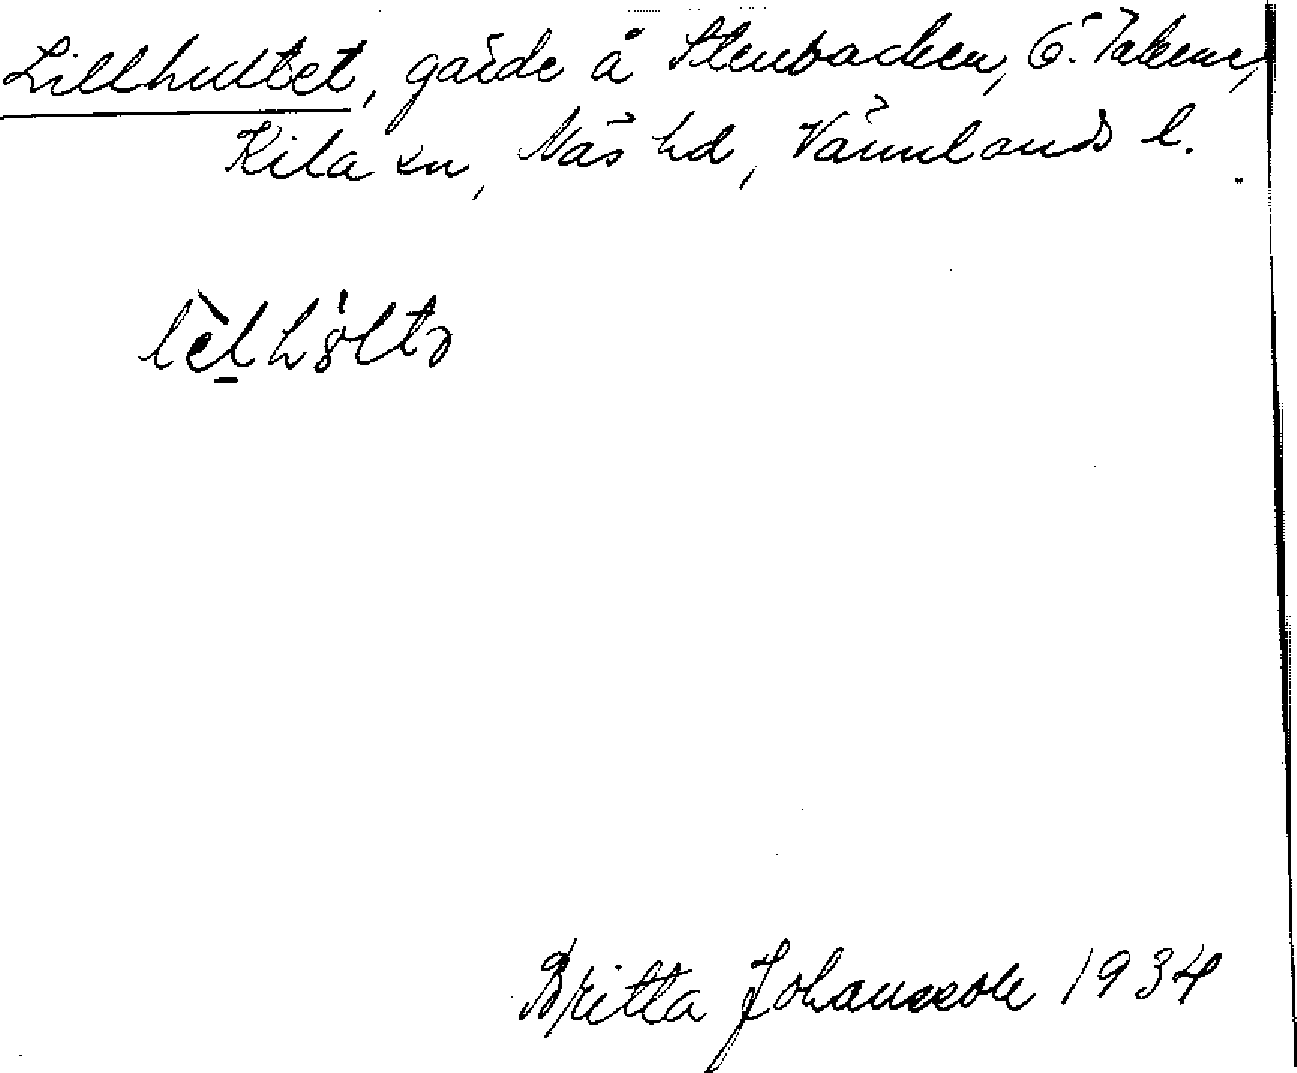 Lillhultet, gärde å Stenbacken, Ö. Takene,
Kila sn, Näs hd, Värmlands l.
lèlhöltə
Britta Johansson 1934